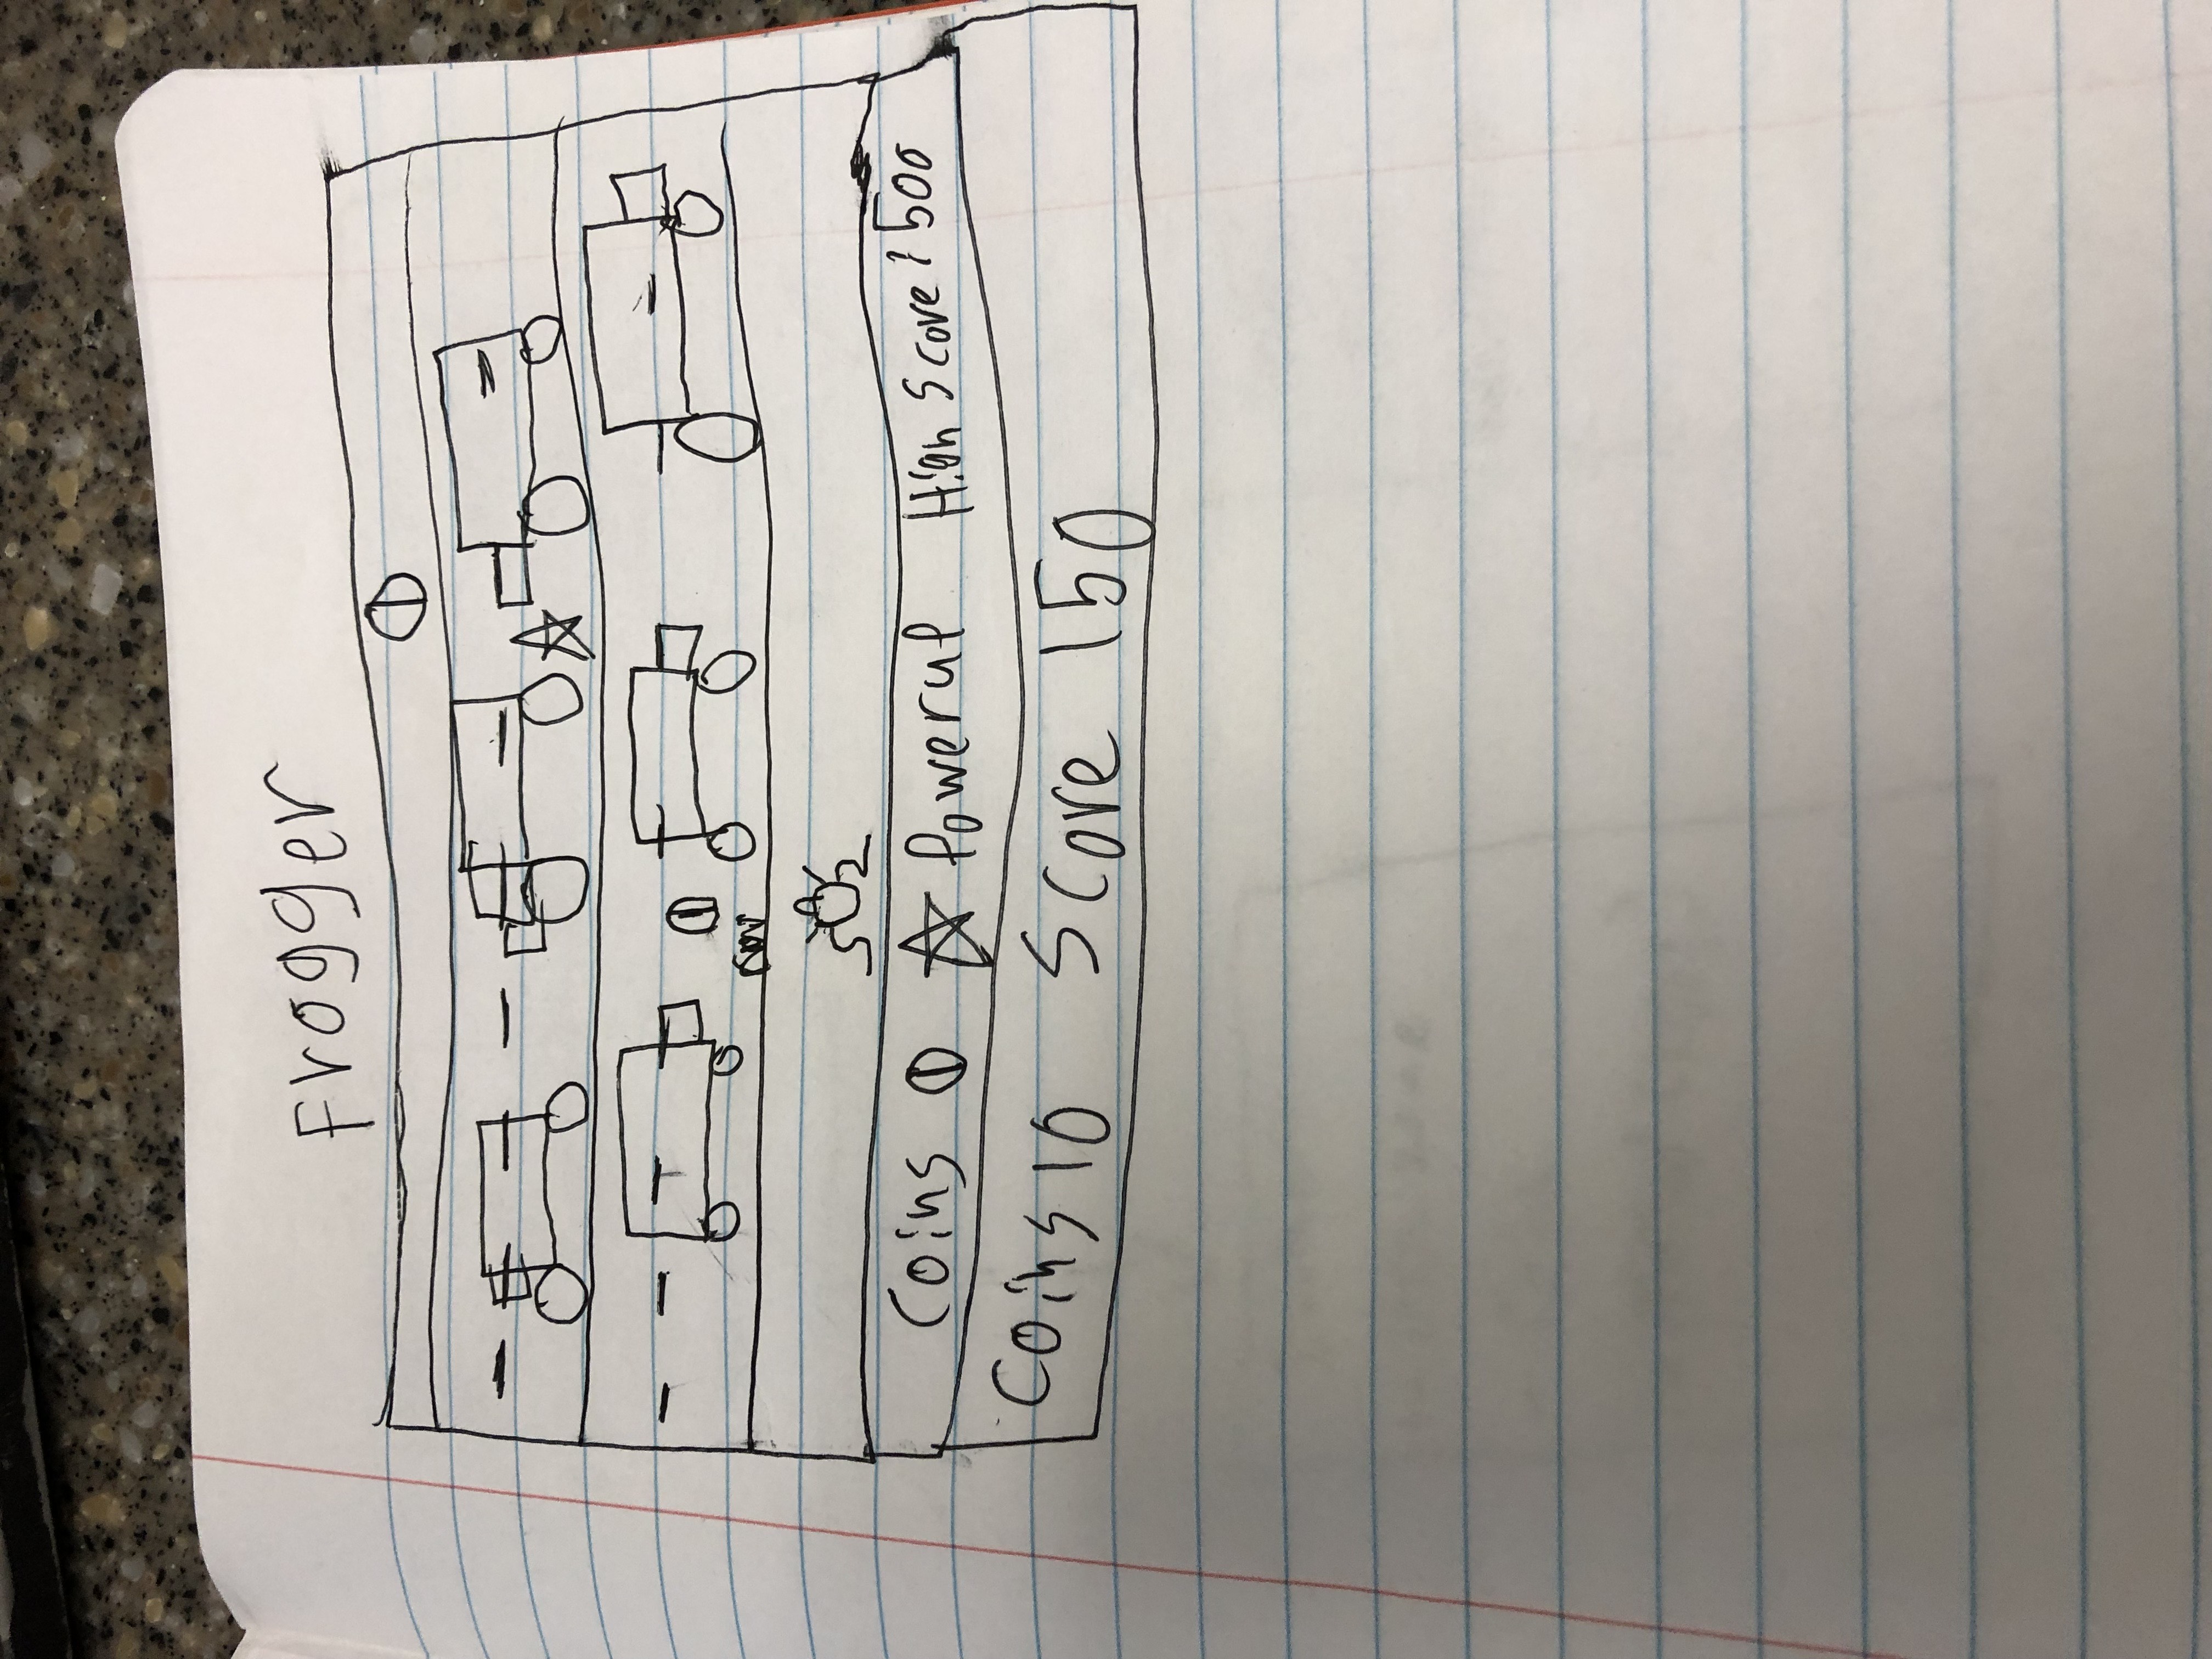 Frogger
Coins Powerup High Score : 500
Coins 10 Score 150